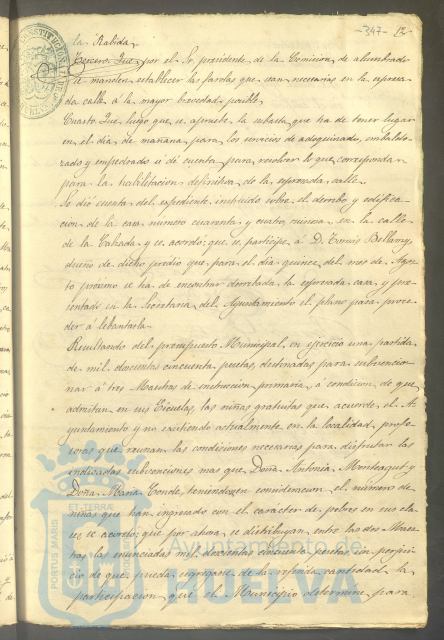 -347- 12
la Rabida.
Tercero Que por el Sr. presidente de la Comision de alumbrado
se manden establecer las farolas que sean necesarias en la expresa-
da calle á la mayor brevedad posible.
Cuarto Que luego que se apruebe la subasta que ha de tener lugar
en el dia de mañana para los servicios de adoquinado, embaldo-
zado y empedrado se dé cuenta para resolver lo que corresponda
para la habilitacion definitiva de la expresada calle.
Se dió cuenta del expediente instruido sobre el derribo y edifica-
cion de la casa numero cuarenta y cuatro, ruinosa en la calle
de la Calzada y se acordó: que se participe á D. Tomás Bellamy,
dueño de dicho predio que para el dia quince del mes de Agos-
to próximo se ha de encontrar derribada la expresada casa y pre-
sentado en la Secretaria del Ayuntamiento el plano para proce-
der á lebantarla.
Resultando del presupuesto Municipal en ejercicio una partida
de mil doscientas cincuenta pesetas destinadas para subvencio-
nar á tres Maestras de instruccion primaria, á condicion de que
admitan en sus Escuelas, las niñas gratuitas que acuerde el A-
yuntamiento y no existiendo actualmente en la localidad profe-
soras que reunan las condiciones necesarias para disfrutar las
indicadas subvenciones mas que Doña Antonia Montagut y
Doña Maria Conde, teniendose en consideracion el número de
niñas que han ingresado con el caracter de pobres en sus cla-
ses se acordó; que por ahora se distribuyan entre las dos Maes-
tras las enunciadas mil doscientas cincuenta pesetas sin perjui-
cio de que pueda segregarse de la referida cantidad la
participacion que el Municipio determine para
PORTUS MARIS
ET TERRAE
Ayuntamiento de
HUELVA